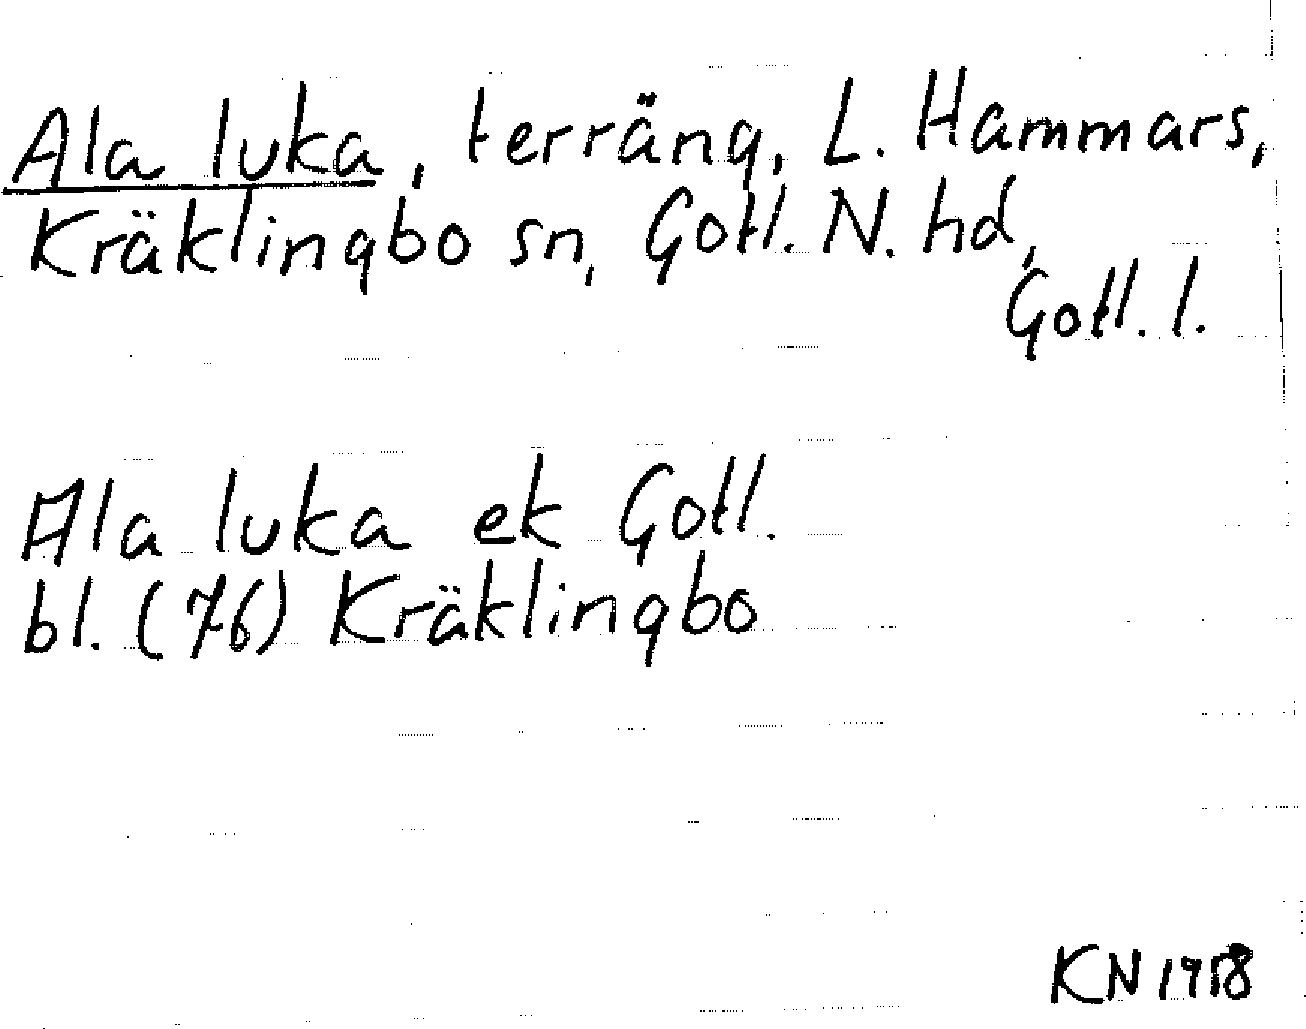 Ala luka, terräng, L. Hammars,
Kräklingbo sn, Gotl. N. hd,
Gotl. l.
Ala luka ek Gotl.
bl. (76) Kräklingbo
KN 1958